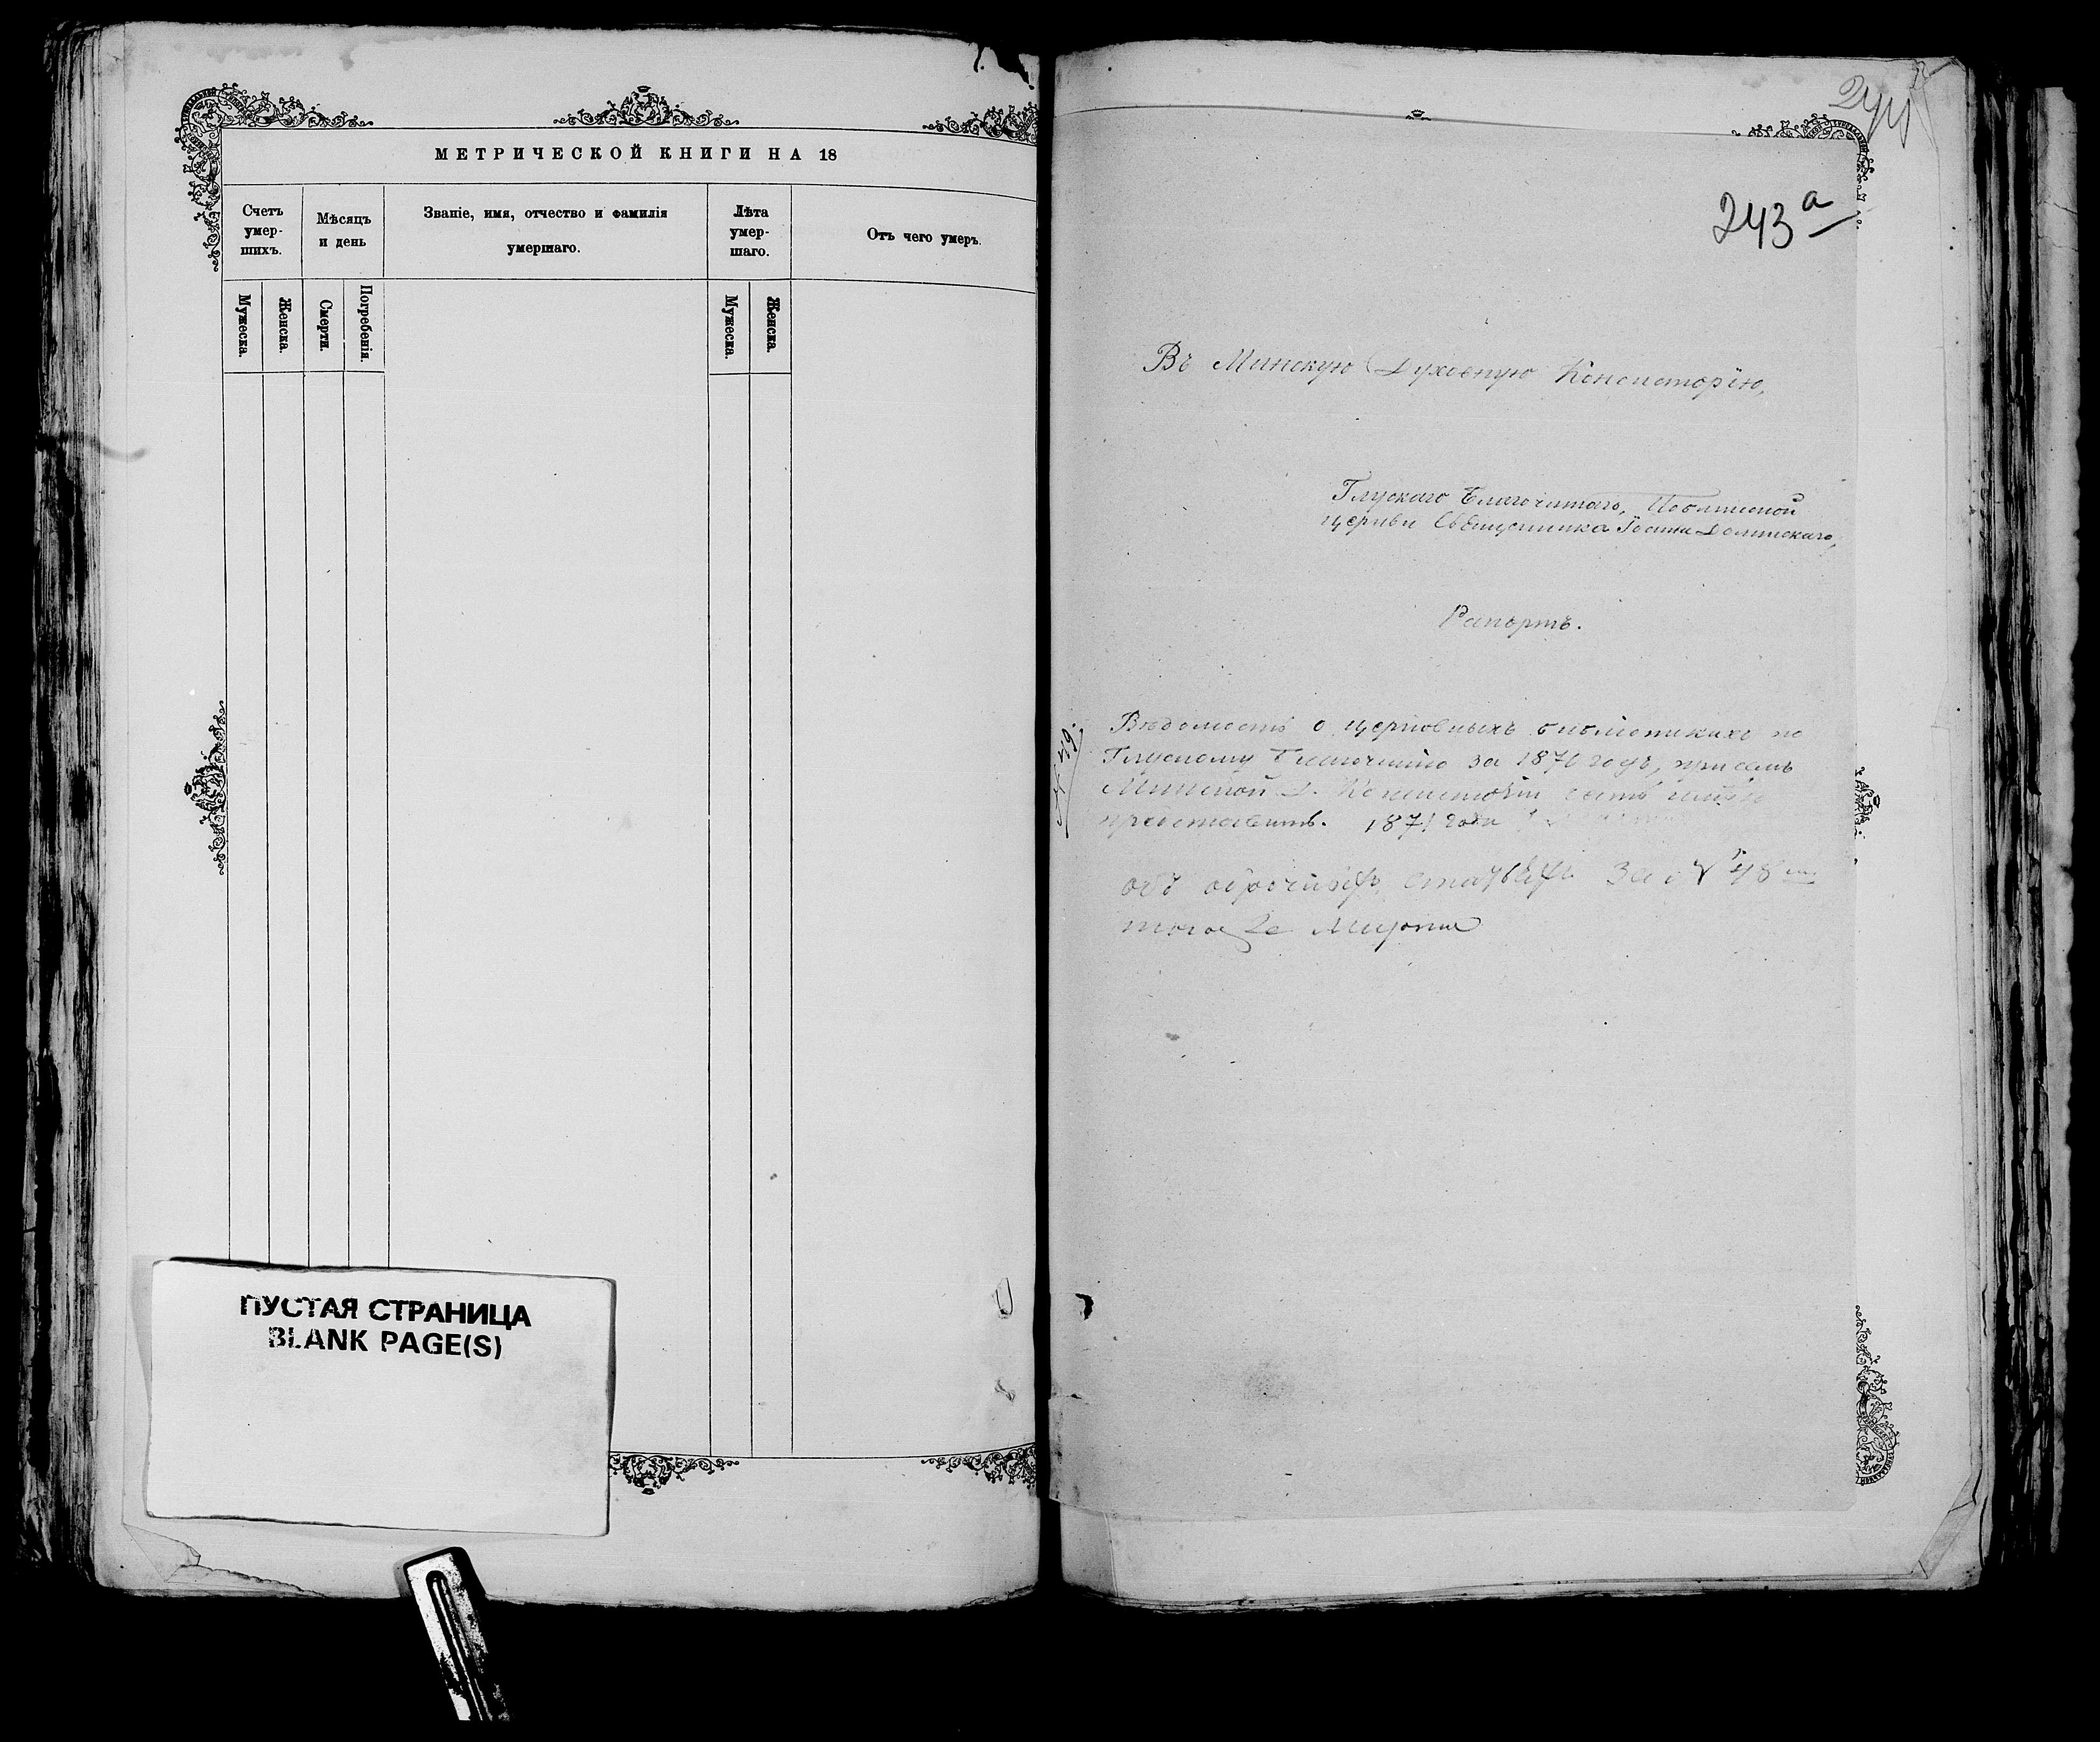 МЕТРИЧЕСКОЙ КНИГИ НА 18
Счетъ умер-шихъ.
Мѣсяцъ и день
Званіе, имя, отчество и фамилія умершаго.
Лѣта умер-шаго.
Отъ чего умеръ.
Мужеска.
Женска.
Смерти.
Погребенія.
Мужеска.
Женска.
ПУСТАЯ СТРАНИЦА
BLANK PAGE(S)
243а
Въ Минскую Духовную Консисторію,
Глускаго Благочиннаго,
церкви Священника Іоанна
Рапортъ.
Вѣдомость о церковныхъ библіотекахъ по
Глускому Благочинію за 1870 годъ, при семъ
Минской Д. Консисторіи честь имѣю
представить. 1871 года
объ оброчныхъ статьяхъ за № 48
тогоже Марта